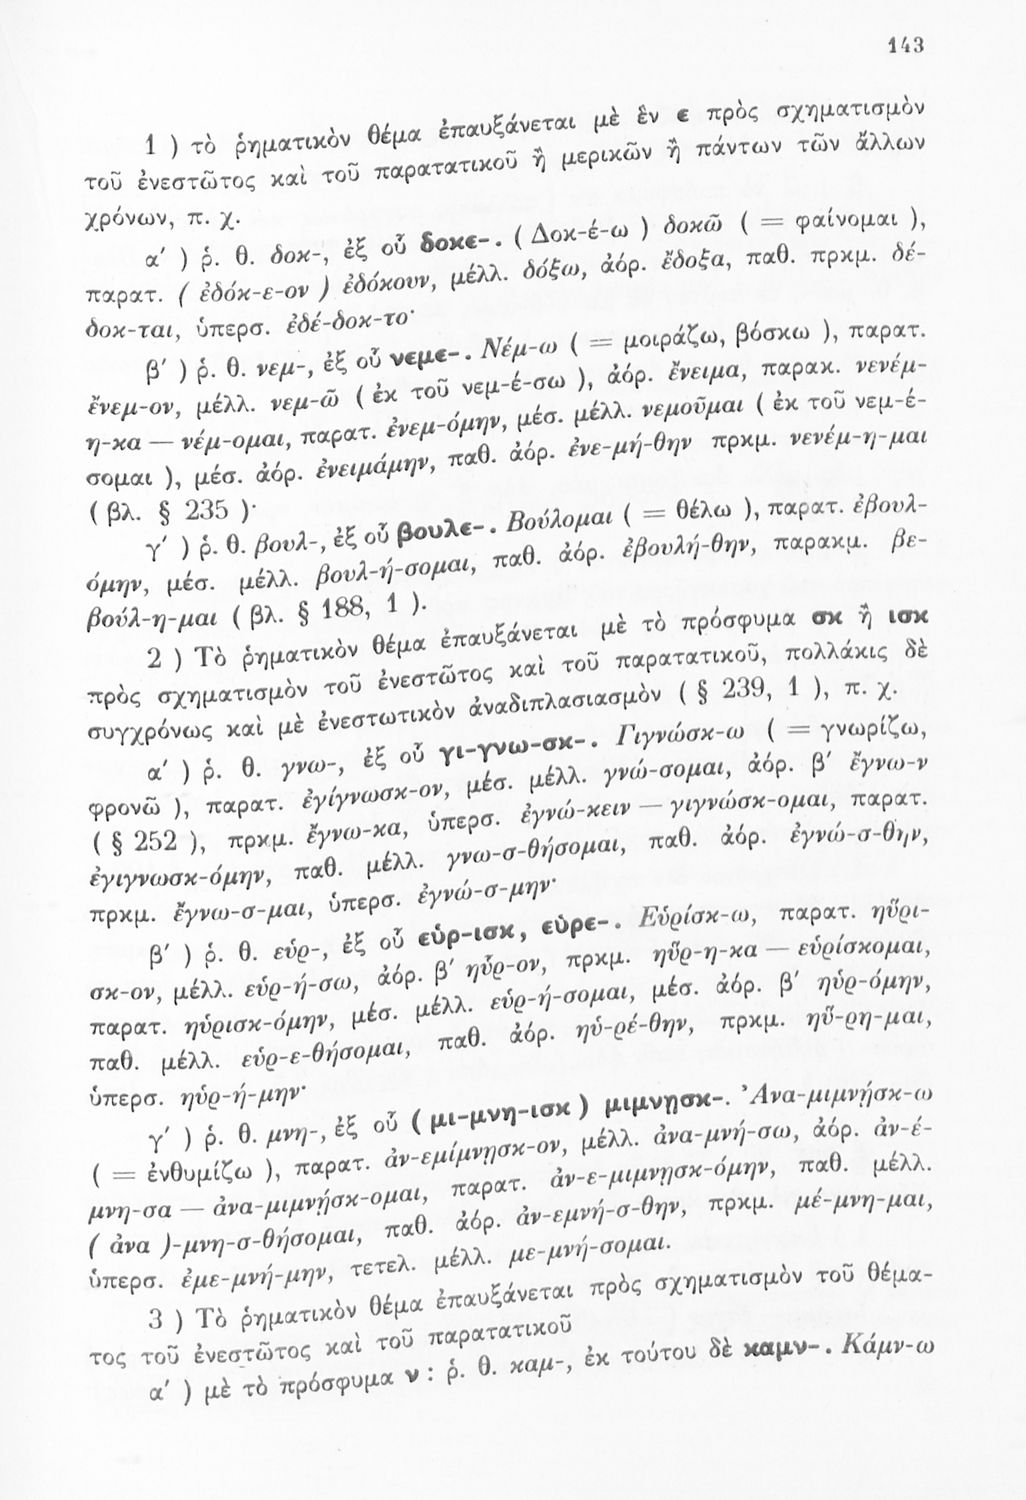 143
1 ) τὸ ῥηματικὸν θέμα ἐπαυξάνεται μὲ ἓν ε πρὸς σχηματισμὸν
τοῦ ἐνεστῶτος καὶ τοῦ παρατατικοῦ ἢ μερικῶν ἢ πάντων τῶν ἄλλων
χρόνων, π. χ.
α' ) ῥ. θ. δοκ-, ἐξ οὗ δοκε-. ( Δοκ-έ-ω ) δοκῶ ( = φαίνομαι ),
παρατ. ( ἐδόκ-ε-ον ) ἐδόκουν, μέλλ. δόξω, ἀόρ. ἔδοξα, παθ. πρκμ. δέ-
δοκ-ται, ὑπερσ. ἐδέ-δοκ-το·
β' ) ῥ. θ. νεμ-, ἐξ οὗ νεμε-. Νέμ-ω ( = μοιράζω, βόσκω ), παρατ.
ἔνεμ-ον, μέλλ. νεμ-ῶ ( ἐκ τοῦ νεμ-έ-σω ), ἀόρ. ἔνειμα, παρακ. νενέμ-
η-κα — νέμ-ομαι, παρατ. ἐνεμ-όμην, μέσ. μέλλ. νεμοῦμαι ( ἐκ τοῦ νεμ-έ-
σομαι ), μέσ. ἀόρ. ἐνειμάμην, παθ. ἀόρ. ἐνε-μή-θην πρκμ. νενέμ-η-μαι
( βλ. § 235 )·
γ' ) ῥ. θ. βουλ-, ἐξ οὗ βουλε-. Βούλομαι ( = θέλω ), παρατ. ἐβουλ-
όμην, μέσ. μέλλ. βουλ-ή-σομαι, παθ. ἀόρ. ἐβουλή-θην, παρακμ. βε-
βούλ-η-μαι ( βλ. § 188, 1 ).
2 ) Τὸ ῥηματικὸν θέμα ἐπαυξάνεται μὲ τὸ πρόσφυμα σκ ἢ ισκ
πρὸς σχηματισμὸν τοῦ ἐνεστῶτος καὶ τοῦ παρατατικοῦ, πολλάκις δὲ
συγχρόνως καὶ μὲ ἐνεστωτικὸν ἀναδιπλασιασμὸν ( § 239, 1 ), π. χ.
α' ) ῥ. θ. γνω-, ἐξ οὗ γι-γνω-σκ-. Γιγνώσκ-ω ( = γνωρίζω,
φρονῶ ), παρατ. ἐγίγνωσκ-ον, μέσ. μέλλ. γνώ-σομαι, ἀόρ. β' ἔγνω-ν
( § 252 ), πρκμ. ἔγνω-κα, ὑπερσ. ἐγνώ-κειν — γιγνώσκ-ομαι, παρατ.
ἐγιγνωσκ-όμην, παθ. μέλλ. γνω-σ-θήσομαι, παθ. ἀόρ. ἐγνώ-σ-θην,
πρκμ. ἔγνω-σ-μαι, ὑπερσ. ἐγνώ-σ-μην·
β' ) ῥ. θ. εὑρ-, ἐξ οὗ εὑρ-ισκ, εὑρε-. Εὑρίσκ-ω, παρατ. ηὕρι-
σκ-ον, μέλλ. εὑρ-ή-σω, ἀόρ. β' ηὗρ-ον, πρκμ. ηὕρ-η-κα — εὑρίσκομαι,
παρατ. ηὑρισκ-όμην, μέσ. μέλλ. εὑρ-ή-σομαι, μέσ. ἀόρ. β' ηὑρ-όμην,
παθ. μέλλ. εὑρ-ε-θήσομαι, παθ. ἀόρ. ηὑ-ρέ-θην, πρκμ. ηὕ-ρη-μαι,
ὑπερσ. ηὑρ-ή-μην·
γ' ) ῥ. θ. μνη-, ἐξ οὗ ( μι-μνη-ισκ ) μιμνῃσκ-. Ἀνα-μιμνῄσκ-ω
( = ἐνθυμίζω ), παρατ. ἀν-εμίμνῃσκ-ον, μέλλ. ἀνα-μνή-σω, ἀόρ. ἀν-έ-
μνη-σα — ἀνα-μιμνῄσκ-ομαι, παρατ. ἀν-ε-μιμνῃσκ-όμην, παθ. μέλλ.
( ἀνα )-μνη-σ-θήσομαι, παθ. ἀόρ. ἀν-εμνή-σ-θην, πρκμ. μέ-μνη-μαι,
ὑπερσ. ἐμε-μνή-μην, τετελ. μέλλ. με-μνή-σομαι.
3 ) Τὸ ῥηματικὸν θέμα ἐπαυξάνεται πρὸς σχηματισμὸν τοῦ θέμα-
τος τοῦ ἐνεστῶτος καὶ τοῦ παρατατικοῦ
α' ) μὲ τὸ πρόσφυμα ν : ῥ. θ. καμ-, ἐκ τούτου δὲ καμν-. Κάμν-ω